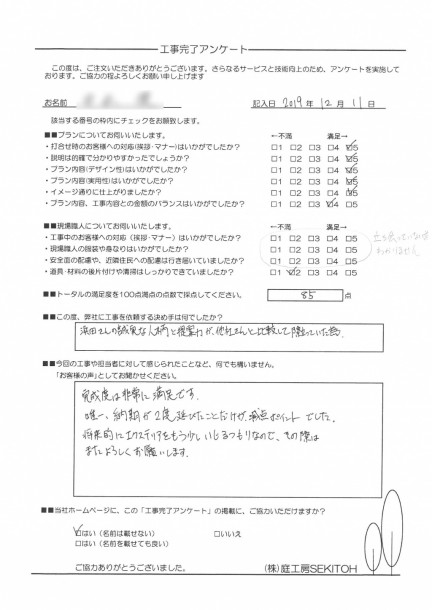 工事完了アンケート
この度は、ご注文いただきありがとうございます。さらなるサービスと技術向上のため、アンケートを実施して
おります。ご協力の程よろしくお願い申し上げます
お名前
記入日 2019年 12月 11日
該当する番号の枠内にチェックをお願致します。
■■プランについてお伺いいたします。 ←不満 満足→
・打合せ時のお客様への対応(挨拶・マナー)はいかがでしたか? □1 □2 □3 □4 □5
・説明は的確で分かりやすかったでしょうか? □1 □2 □3 □4 □5
・プラン内容(デザイン性)はいかがでしたか? □1 □2 □3 □4 □5
・プラン内容(実用性)はいかがでしたか? □1 □2 □3 □4 □5
・イメージ通りに仕上がりましたか? □1 □2 □3 □4 □5
・プラン内容、工事内容との金額のバランスはいかがでしたか? □1 □2 □3 □4 □5
■■現場職人についてお伺いいたします。 ←不満 満足→
・工事中のお客様への対応(挨拶・マナー)はいかがでしたか? □1 □2 □3 □4 □5
・現場職人の服装や身なりはいかがでしたか? □1 □2 □3 □4 □5
・安全面の配慮や、近隣住民への配慮は行き届いていましたか? □1 □2 □3 □4 □5
・道具・材料の後片付けや清掃はしっかりできていましたか? □1 □2 □3 □4 □5
■■トータルの満足度を100点満点の点数で採点してください。 85 点
■■この度、弊社に工事を依頼する決め手は何でしたか?
浜田さんの誠実な人柄と提案力が、他社さんと比較して際立っていた為
■■今回の工事や担当者に対して感じられたことなど、何でも構いません。
「お客様の声」としてお聞かせください。
完成度は非常に満足です。
唯一、納期が2度延びたことだけが、減点ポイントでした。
将来的にエクステリアをもう少しいじるつもりなので、その際は
またよろしくお願いします。
■■当社ホームページに、この「工事完了アンケート」の掲載に、ご協力いただけますか?
□はい(名前は載せない) □いいえ
□はい(名前を載せても良い)
ご協力ありがとうございました。
(株)庭工房SEKITOH